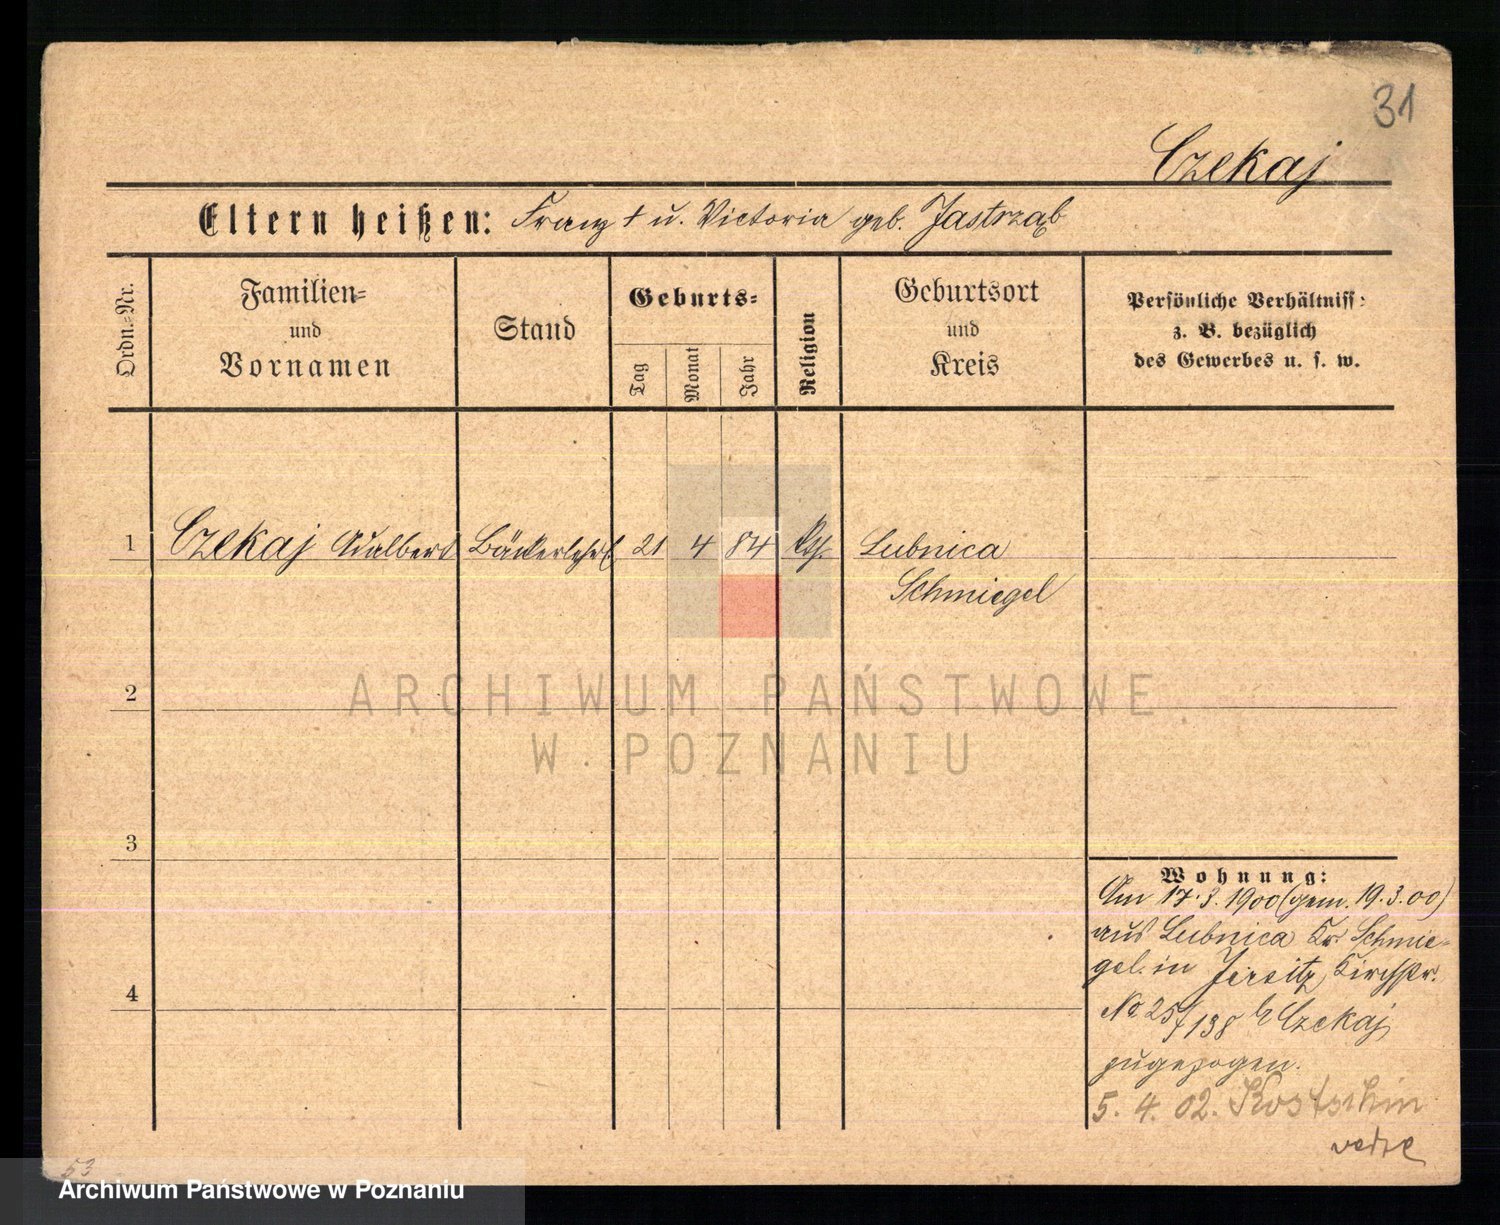 31
Czekaj
Eltern heißen: Franz † u. Victoria geb. Jastrząb
Ordn.-Nr.
Familien-
und
Vornamen
Stand
Geburts-
Tag
Monat
Jahr
Religion
Geburtsort
und
Kreis
Persönliche Verhältniss-
z. B. bezüglich
des Gewerbes u. s. w.
1 Czekaj Adalbert Bäckerlehrl. 21 4 84 kth. Lubnica
Schmiegel
2
3
4
Wohnung:
Am 17.3.1900 (gem. 19.3.00)
aus Lubnica Kr. Schmie-
gel in Jersitz, Kirchstr.
No 25/138 b Czekaj
zugezogen.
5. 4. 02. Kostschin
53
ARCHIWUM PAŃSTWOWE
W POZNANIU
Archiwum Państwowe w Poznaniu